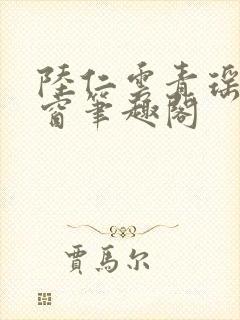 陸仁雲青瑤
窗筆趣閣
賈馬尔